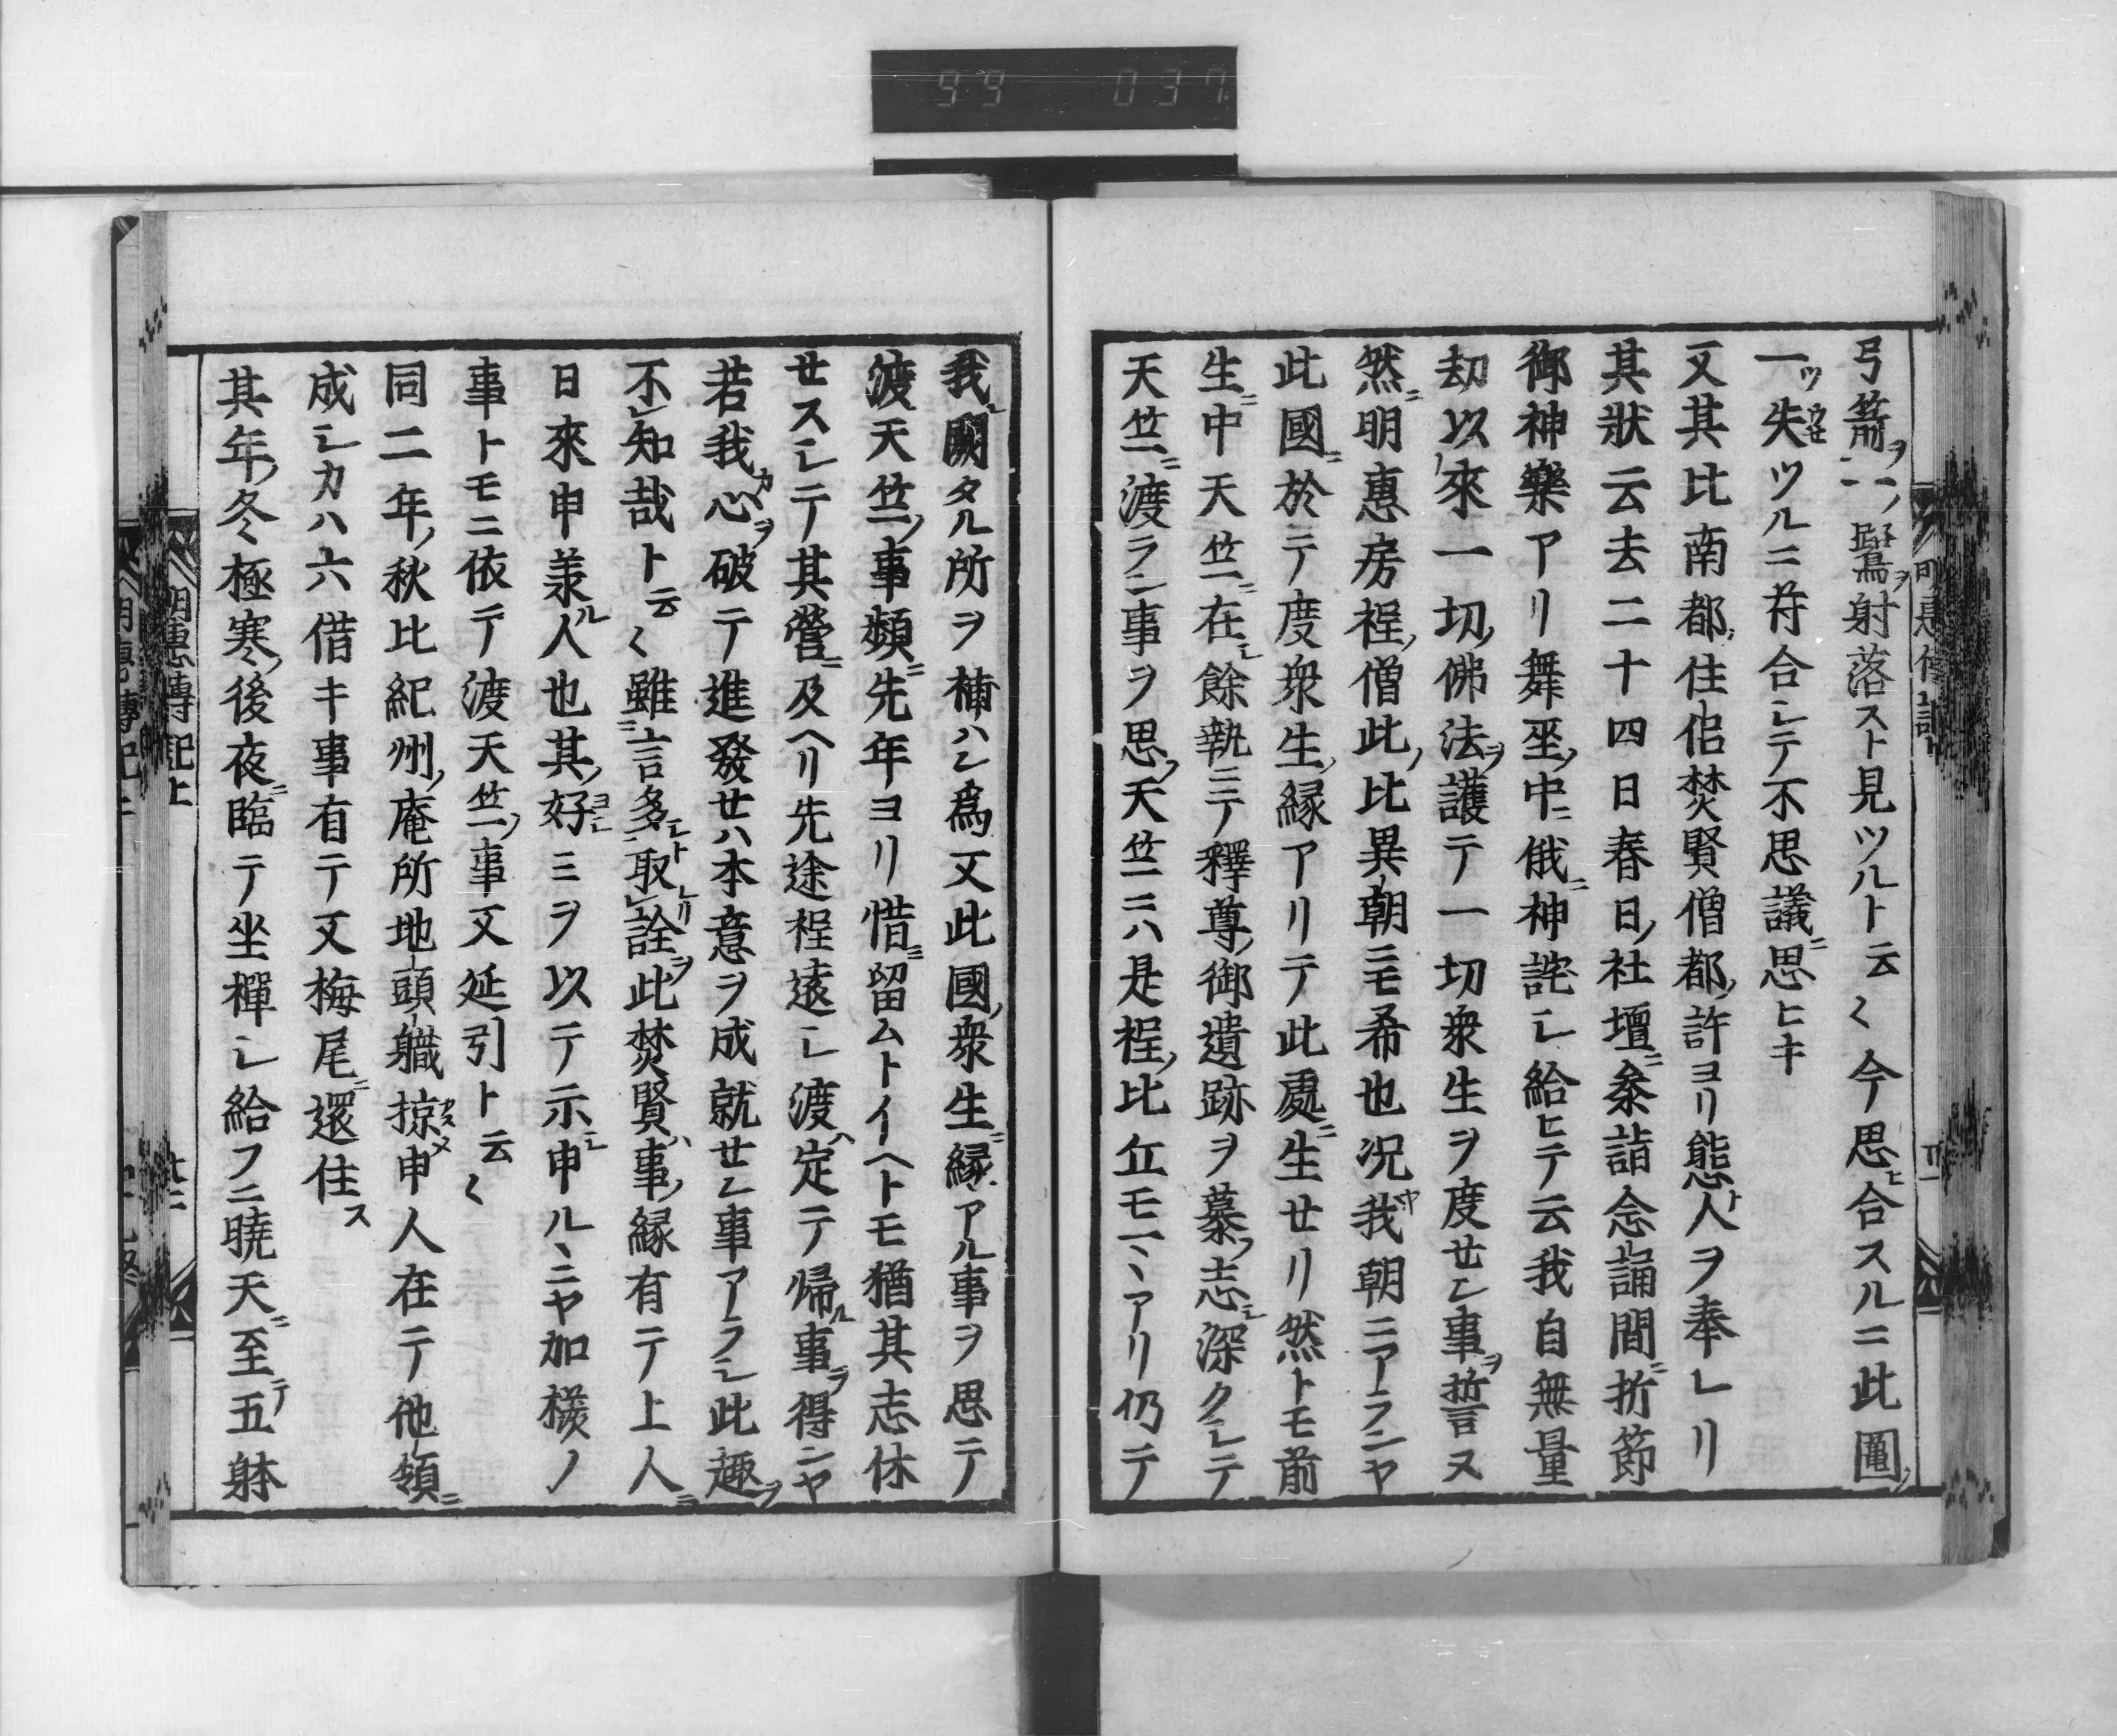 99 037
弓箭ヲ一ノ鷖ヲ射落スト見ツルト云〱今思ヒ合スルニ此圖ノ
一ツ失ウセツルニ苻合シテ不思議ニ思ヒキ
又其比南都ノ住侶焚賢僧都ノ許ヨリ態ト人ヲ奉レリ
其狀云去二十四日春日ノ社壇ニ叅詣シ念誦間ニ折節
御神樂アリ舞巫ノ中ニ俄ニ神詫シ給ヒテ云我自無量
劫以來一切ノ佛法ヲ護テ一切衆生ヲ度せン事ヲ誓ヌ
然ニ明惠房程ノ僧此ノ比異朝ニモ希也况ヤ我朝ニアランヤ
此國ニ於ニテ度衆生ノ縁アリテ此處ニ生せリ然トモ前
生ニ中天竺ニ在シ餘執ニテ釋尊ノ御遺跡ヲ慕フ志シ深クシテ
天竺ニ渡ラン事ヲ思フ天竺ニハ是程ノ比丘モ一ヽアリ仍テ
我レ闕タル所ヲ補ハン爲又此國ノ衆生ニ縁アル事ヲ思テ
渡天竺ノ事頻ニ先年ヨリ惜ミ留ムトイヘトモ猶其志休
せスシテ其營ニ及ヘリ先途程遠シ渡ハ定テ帰ル事ヲ得ンヤ
若我カ心ヲ破テ進發せハ本意ヲ成就せン事アラシ此趣ヲ
不レ知哉ト云〱雖ニ言多シト取レリ詮ヲ此焚賢ハ事ノ縁有テ上人ニ
日來申羕ル人也其ノ好ヨシミヲ以テ示シ申ルヽニヤ加樣ノ
事トモニ依テ渡天竺ノ事又延引ト云〱
同二年ノ秋比紀州ノ庵所地頭職掠カスメ申人在テ他領ニ
成シカハ六借キ事有テ又栂尾ニ還住ス
其年ノ冬ハ極寒ノ後夜ニ臨テ坐禪シ給フニ曉天ニ至テ五躰
明惠傳記上